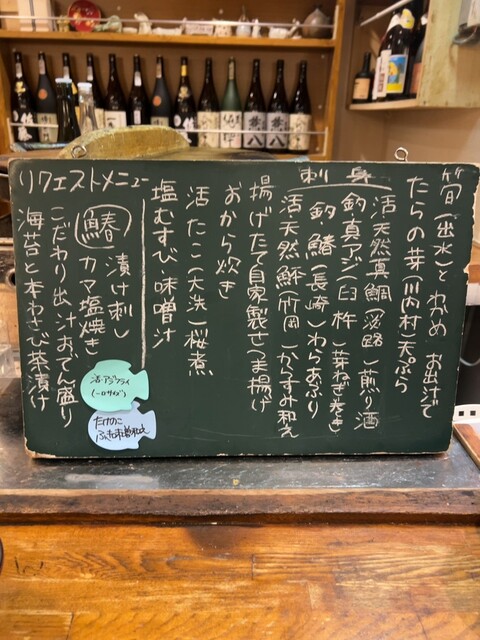 筍(出水)とわかめ お出汁で
たらの芽(川内村)天ぷら
刺身
活 天然真鯛(淡路)煎り酒
釣 真アジ(臼杵)芽ねぎ巻き
釣 鰆(長崎)わらあぶり
活 天然鮃(竹岡)からすみ和え
揚げたて自家製さつま揚げ
おから炊き
活 たこ(大洗)桜煮
塩むすび・味噌汁
リクエストメニュー
鰆 漬け刺し
カマ塩焼き
こだわり出汁おでん盛り
海苔と本わさび茶漬け
活・アジフライ
(一口サイズ)
たけのこ
ふき味噌和え